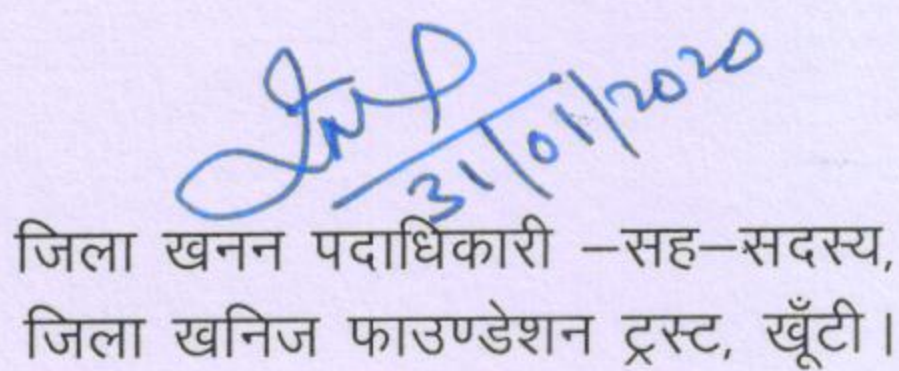 31/01/2020
जिला खनन पदाधिकारी –सह–सदस्य,
जिला खनिज फाउण्डेशन ट्रस्ट, खूँटी।